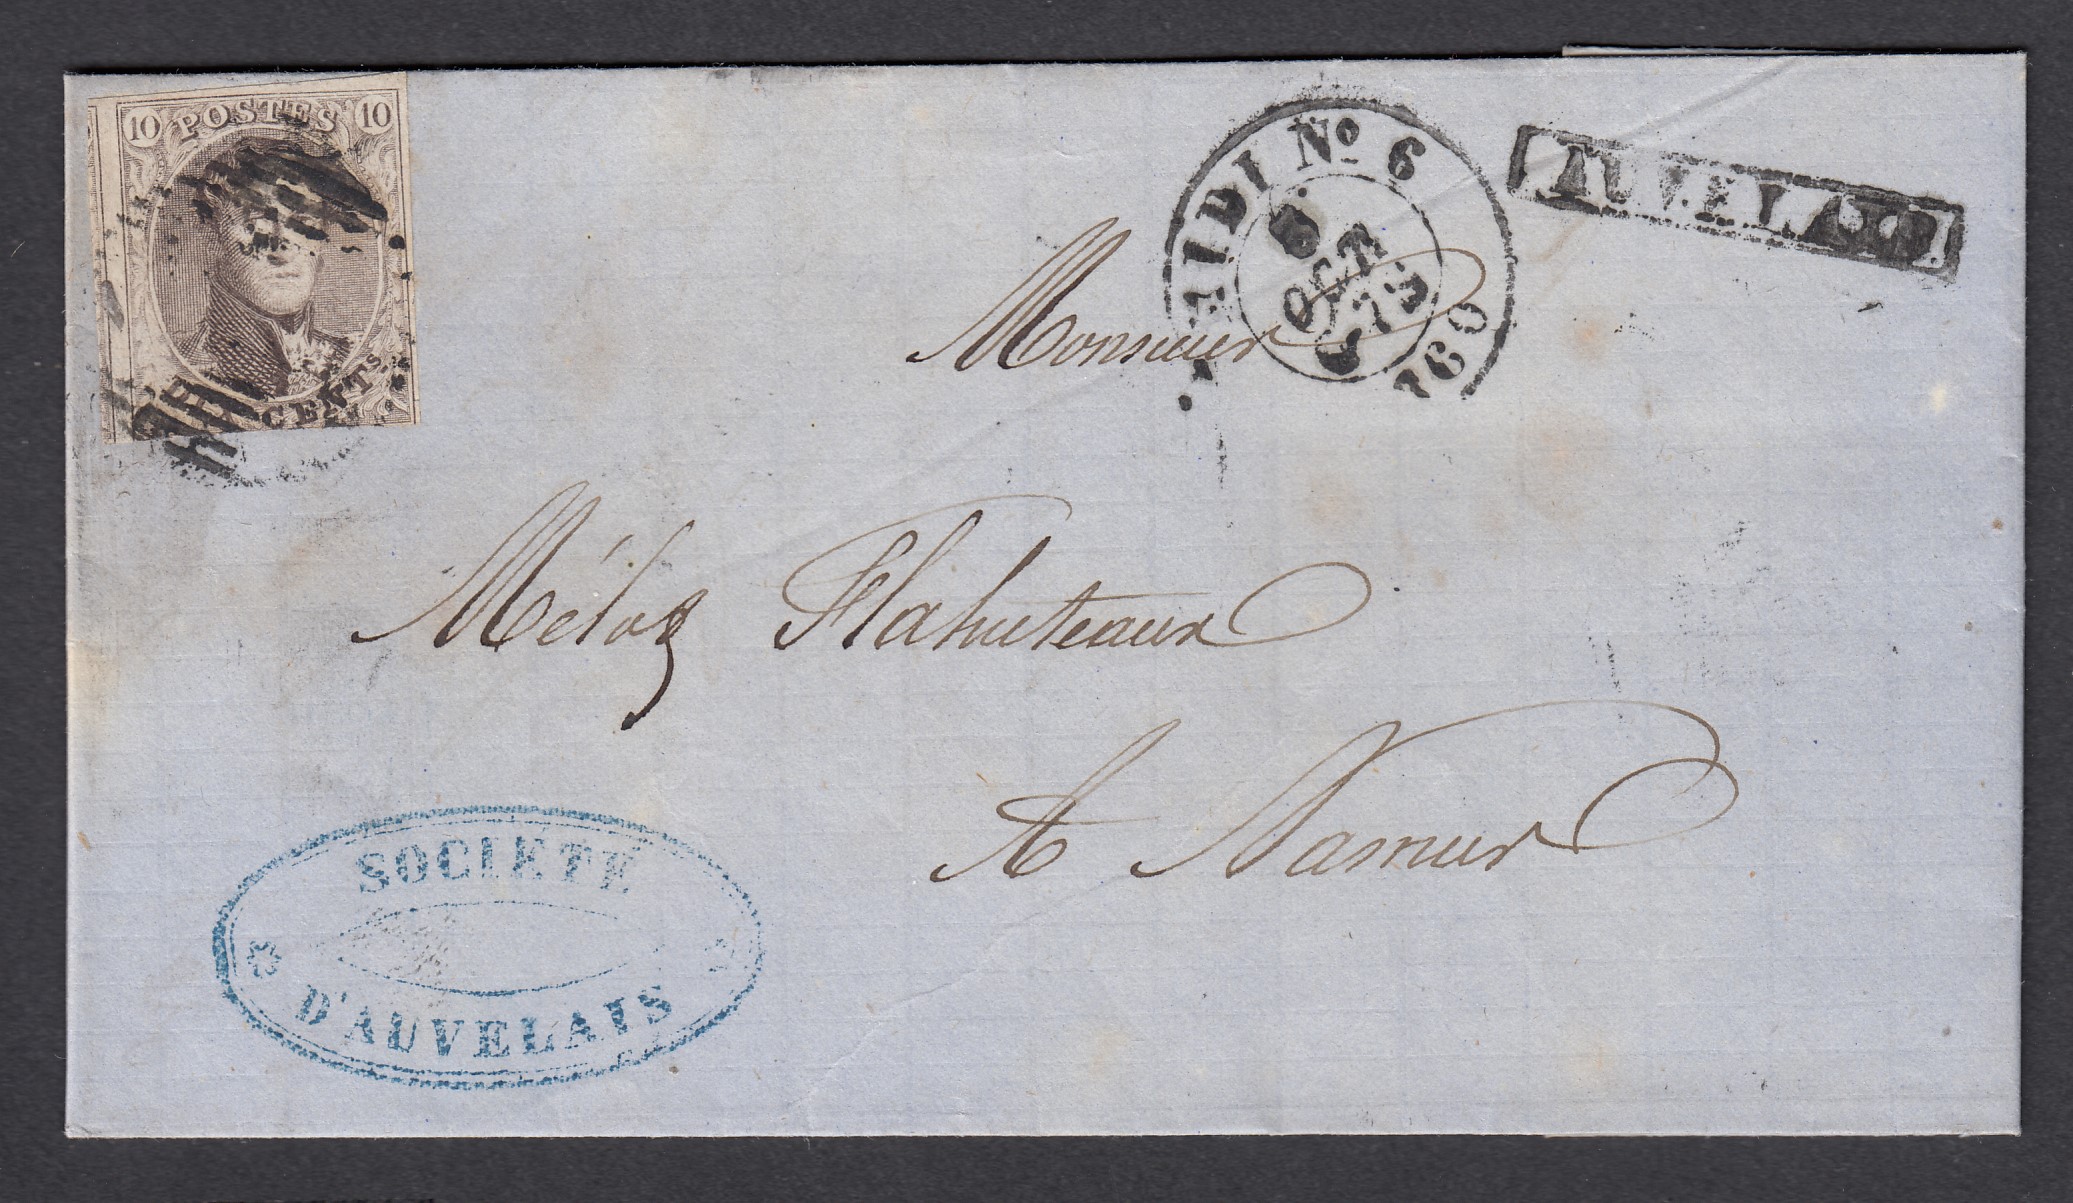 10 POSTES 10
CENTS.
MIDI No 6
OCT
1860
AUVELAIS
Monsieur
Méloz Flahuteaux
A Namur
SOCIETE
D'AUVELAIS